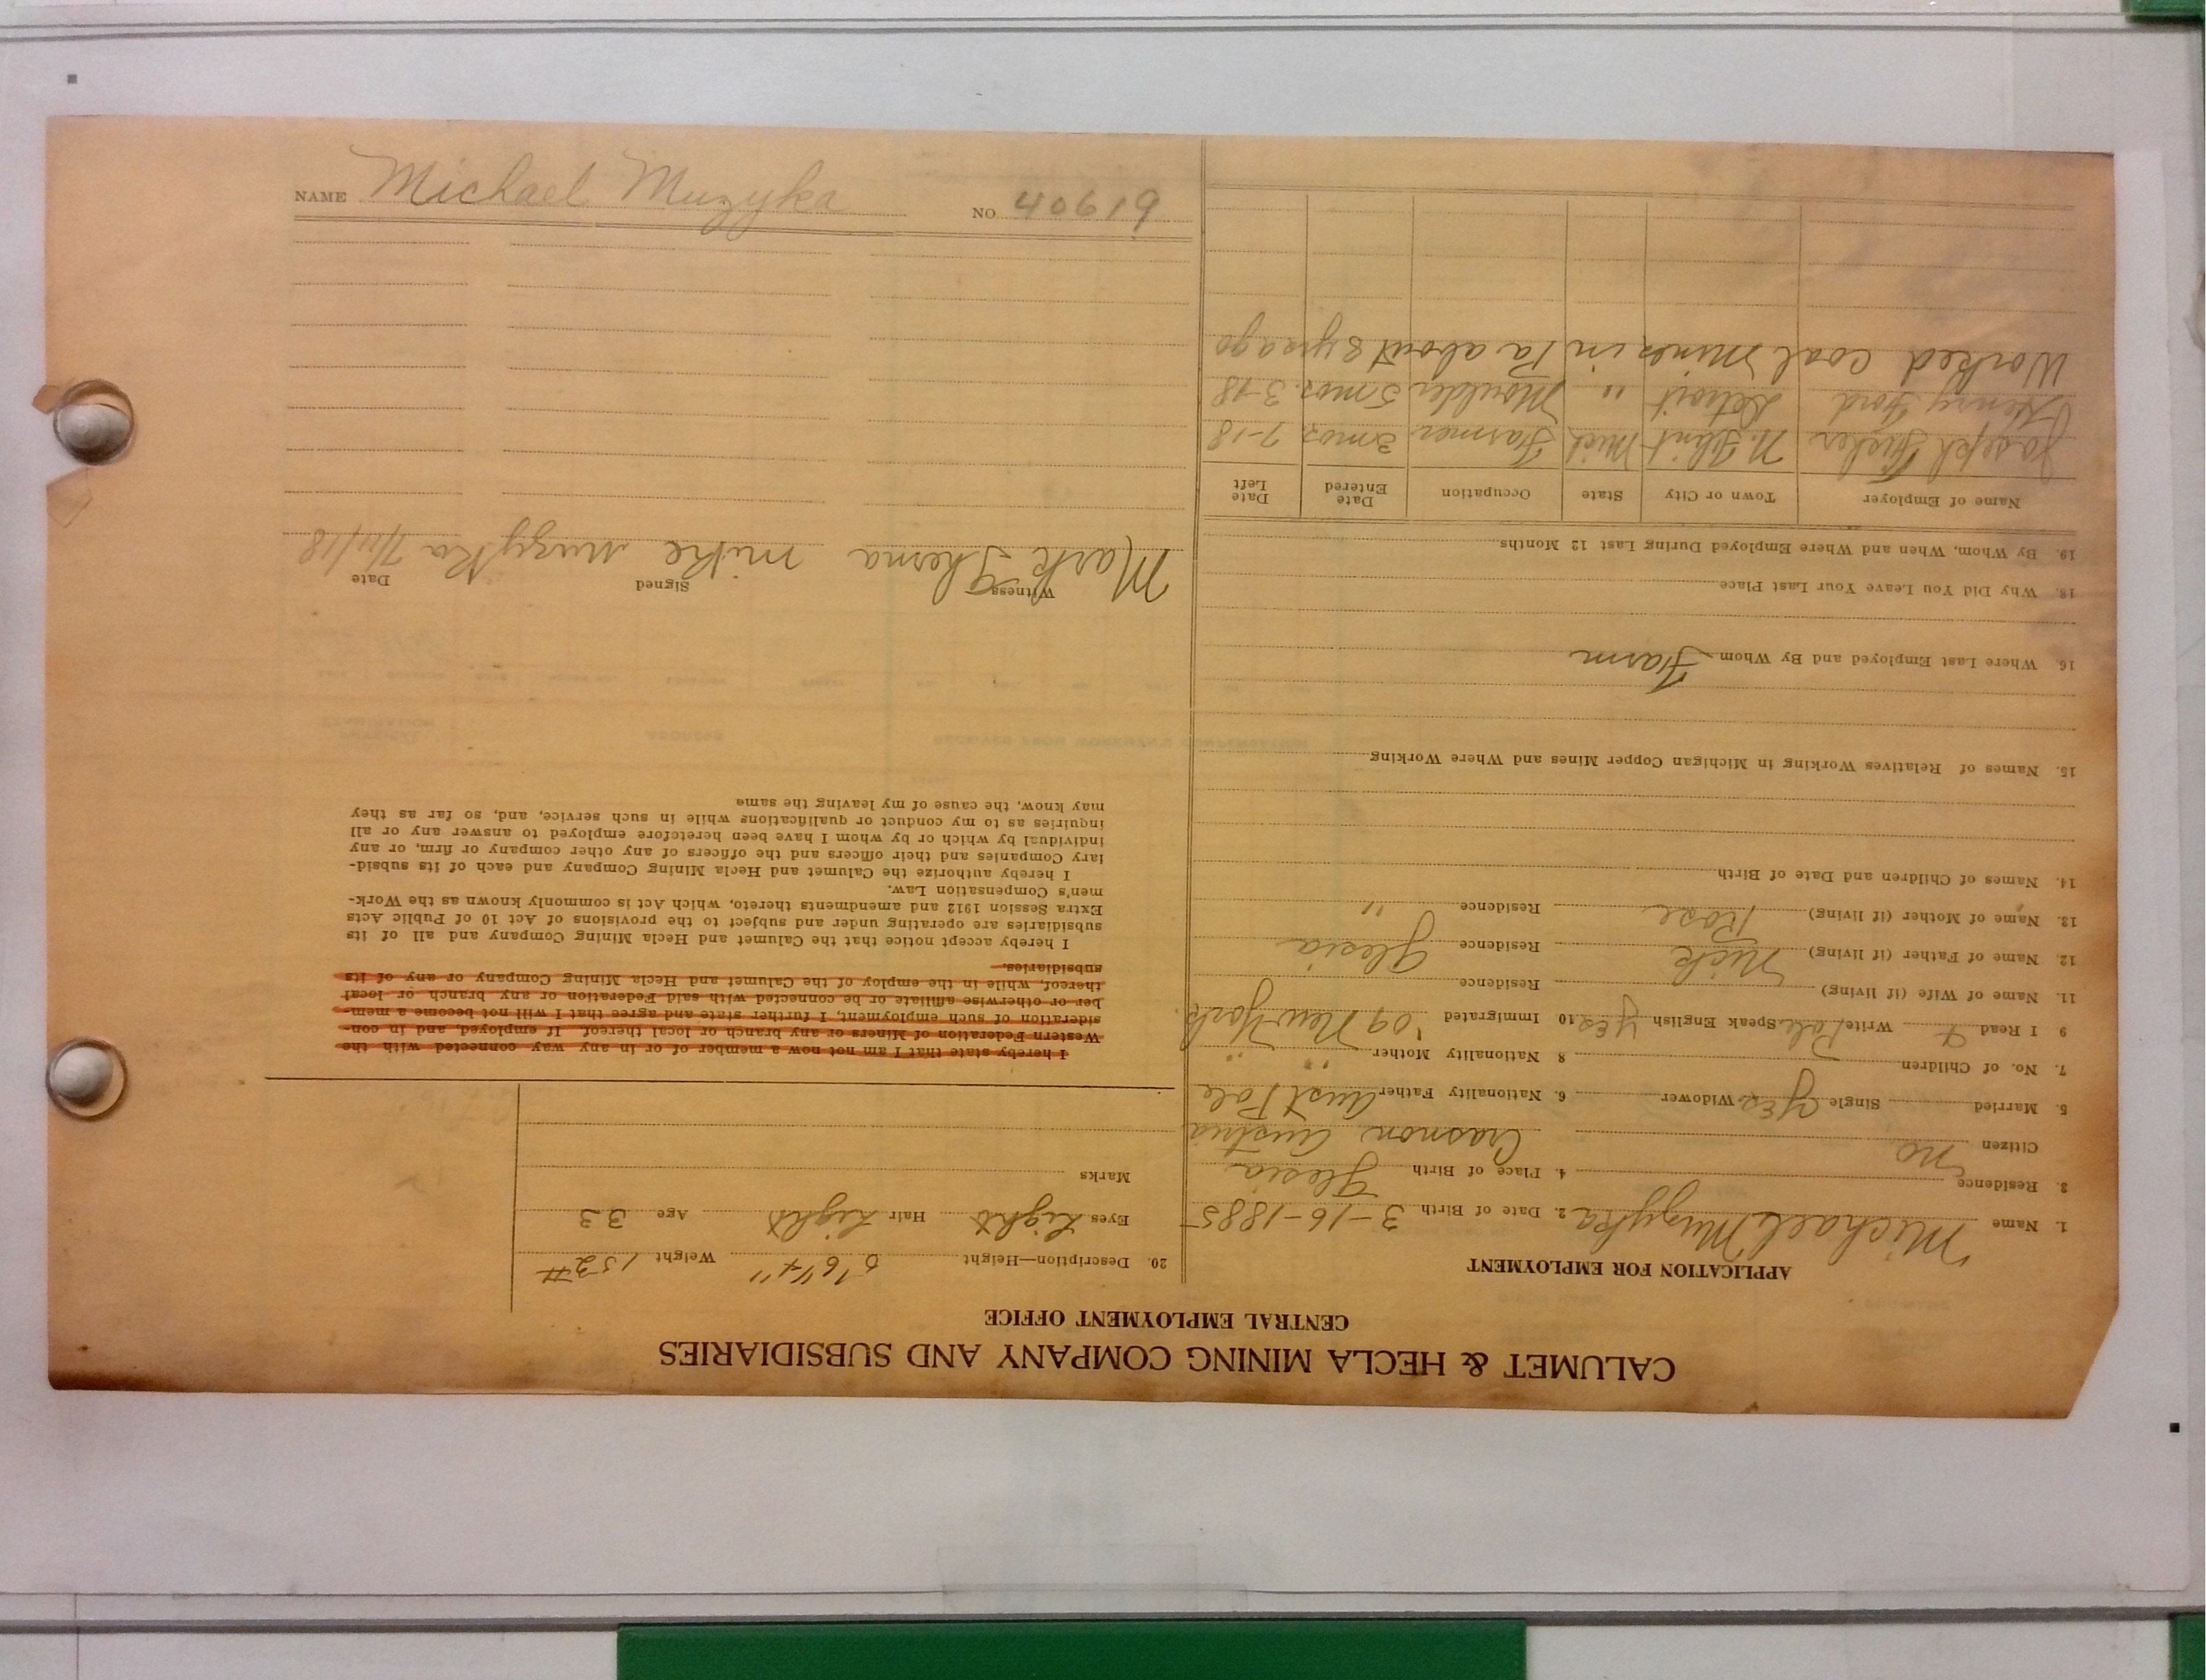 CALUMET & HECLA MINING COMPANY AND SUBSIDIARIES
CENTRAL EMPLOYMENT OFFICE
APPLICATION FOR EMPLOYMENT
1. Name Michael Muzyka 2. Date of Birth 3-16-1885
3. Residence 4. Place of Birth Glesia
Citizen no Crasnon Austria
5. Married Single Yes Widower 6. Nationality Father Aust Pole
7. No. of Children 8 Nationality Mother " "
9 I Read & Write Pole Speak English Yes 10 Immigrated '09 New York
11. Name of Wife (if living) Residence
12. Name of Father (if living) Nick Residence Glesia
13. Name of Mother (if living) Rose Residence "
14. Names of Children and Date of Birth
15. Names of Relatives Working in Michigan Copper Mines and Where Working
16. Where Last Employed and By Whom Farm
18. Why Did You Leave Your Last Place
19. By Whom, When and Where Employed During Last 12 Months
Name of Employer Town or City State Occupation Date Entered Date Left
Joseph N. Flint Mich Farmer 3 mos. 7-18
Henry Ford Detroit " Moulder 5 mos. 3-18
Worked coal mines in Pa about 8 yrs ago
20. Description—Height 5'6 1/4" Weight 152#
Eyes Light Hair Light Age 33
Marks
I hereby state that I am not now a member of or in any way connected with the
Western Federation of Miners or any branch or local thereof. If employed, and in con-
sideration of such employment, I further state and agree that I will not become a mem-
ber or otherwise affiliate or be connected with said Federation or any branch or local
thereof, while in the employ of the Calumet and Hecla Mining Company or any of its
subsidiaries.
I hereby accept notice that the Calumet and Hecla Mining Company and all of its
subsidiaries are operating under and subject to the provisions of Act 10 of Public Acts
Extra Session 1912 and amendments thereto, which Act is commonly known as the Work-
men's Compensation Law.
I hereby authorize the Calumet and Hecla Mining Company and each of its subsid-
iary Companies and their officers and the officers of any other company or firm, or any
individual by which or by whom I have been heretofore employed to answer any or all
inquiries as to my conduct or qualifications while in such service, and, so far as they
may know, the cause of my leaving the same
Witness Signed Date
Mark mike muzyka 7/11/18
NAME Michael Muzyka NO 40619